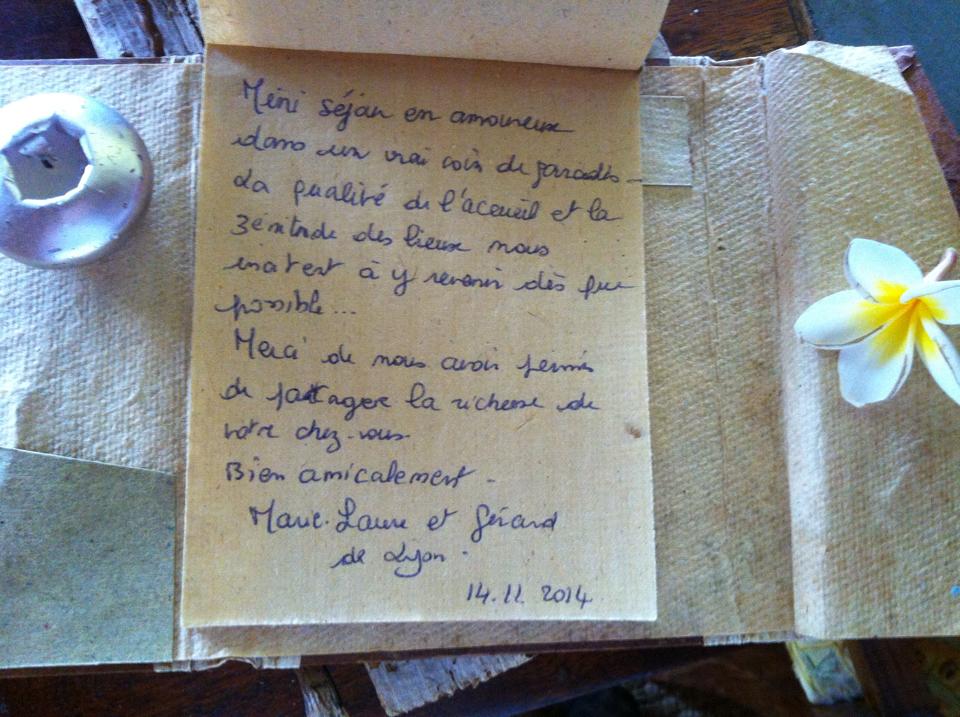 Mini séjour en amoureux
dans un vrai coin de paradis -
La qualité de l'acceuil et la
zénitude des lieux nous
invitent à y revenir dès que
possible...
Merci de nous avoir permis
de partager la richesse de
votre chez-vous.
Bien amicalement -
Marie-Laure et Gérard
de Lyon.
14.11.2014